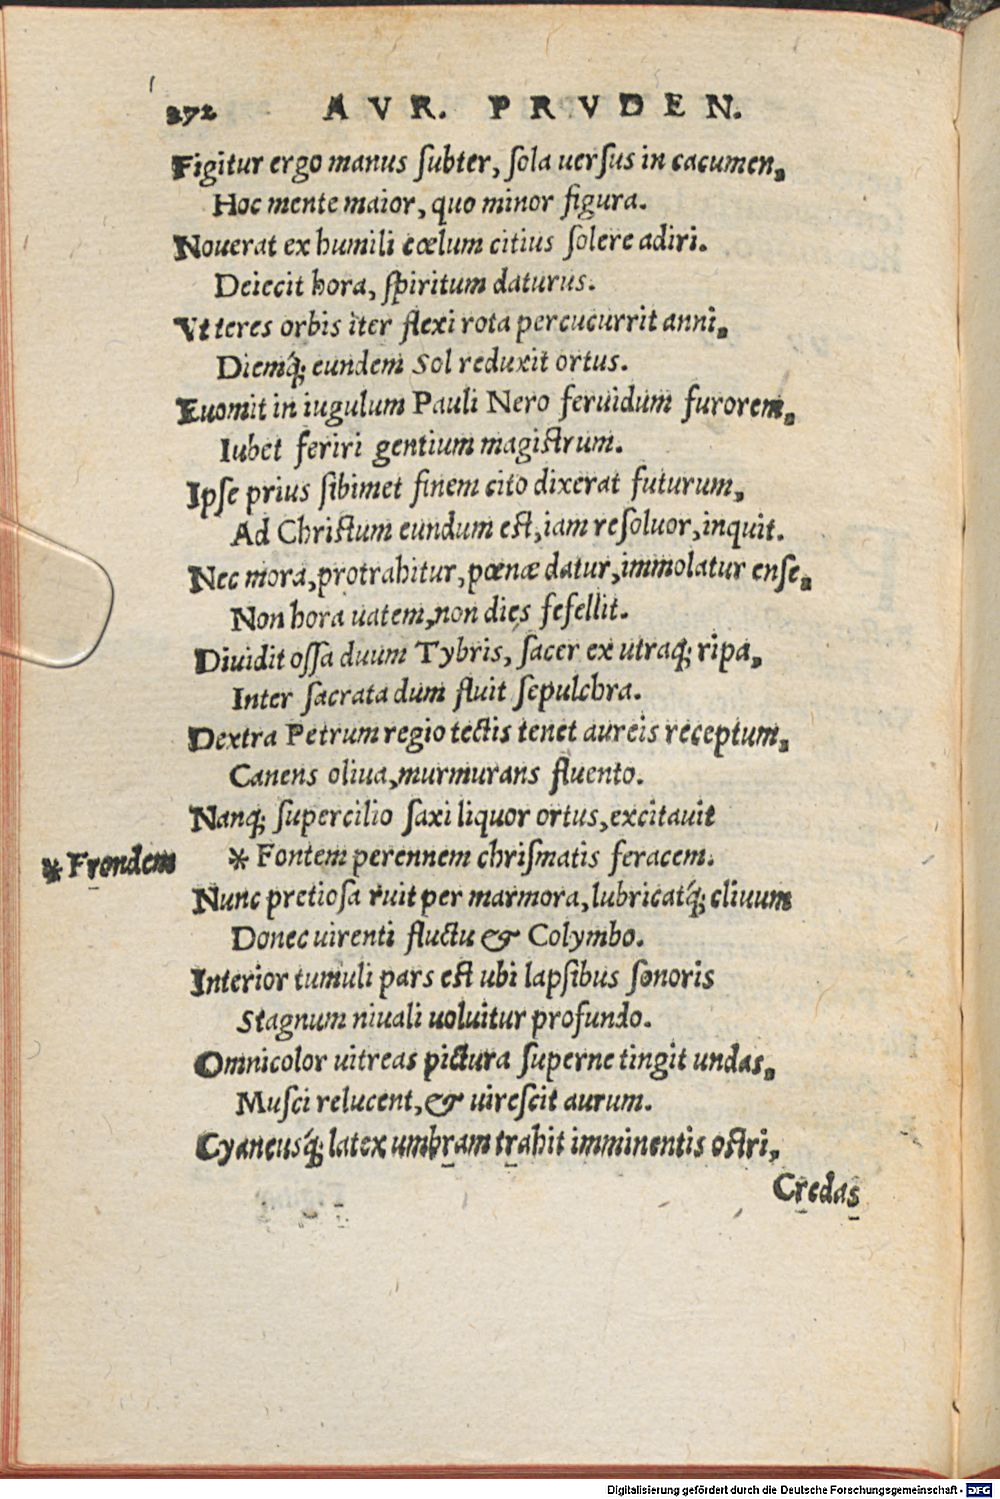 272 AVR. PRVDEN.
Figitur ergo manus ſubter, ſola uerſus in cacumen,
Hoc mente maior, quo minor figura.
Nouerat ex humili cœlum citius ſolere adiri.
Deiecit hora, ſpiritum daturus.
Vt teres orbis iter flexi rota percucurrit anni,
Diemq́; eundem Sol reduxit ortus.
Euomit in iugulum Pauli Nero feruidum furorem,
Iubet feriri gentium magiſtrum.
Ipſe prius ſibimet finem cito dixerat futurum,
Ad Chriſtum eundum eſt, iam reſoluor, inquit.
Nec mora, protrahitur, pœnæ datur, immolatur enſe,
Non hora uatem, non dies fefellit.
Diuidit oſſa duum Tybris, ſacer ex utraq; ripa,
Inter ſacrata dum fluit ſepulchra.
Dextra Petrum regio tectis tenet aureis receptum,
Canens oliua, murmurans fluento.
Nanq; ſupercilio ſaxi liquor ortus, excitauit
* Frondem
* Fontem perennem chriſmatis feracem.
Nunc pretioſa ruit per marmora, lubricatq́; cliuum
Donec uirenti fluctu & Colymbo.
Interior tumuli pars eſt ubi lapſibus ſonoris
Stagnum niuali uoluitur profundo.
Omnicolor uitreas pictura ſuperne tingit undas,
Muſci relucent, & uireſcit aurum.
Cyaneusq́; latex umbram trahit imminentis oſtri,
Credas
Digitalisierung gefördert durch die Deutsche Forschungsgemeinschaft - DFG